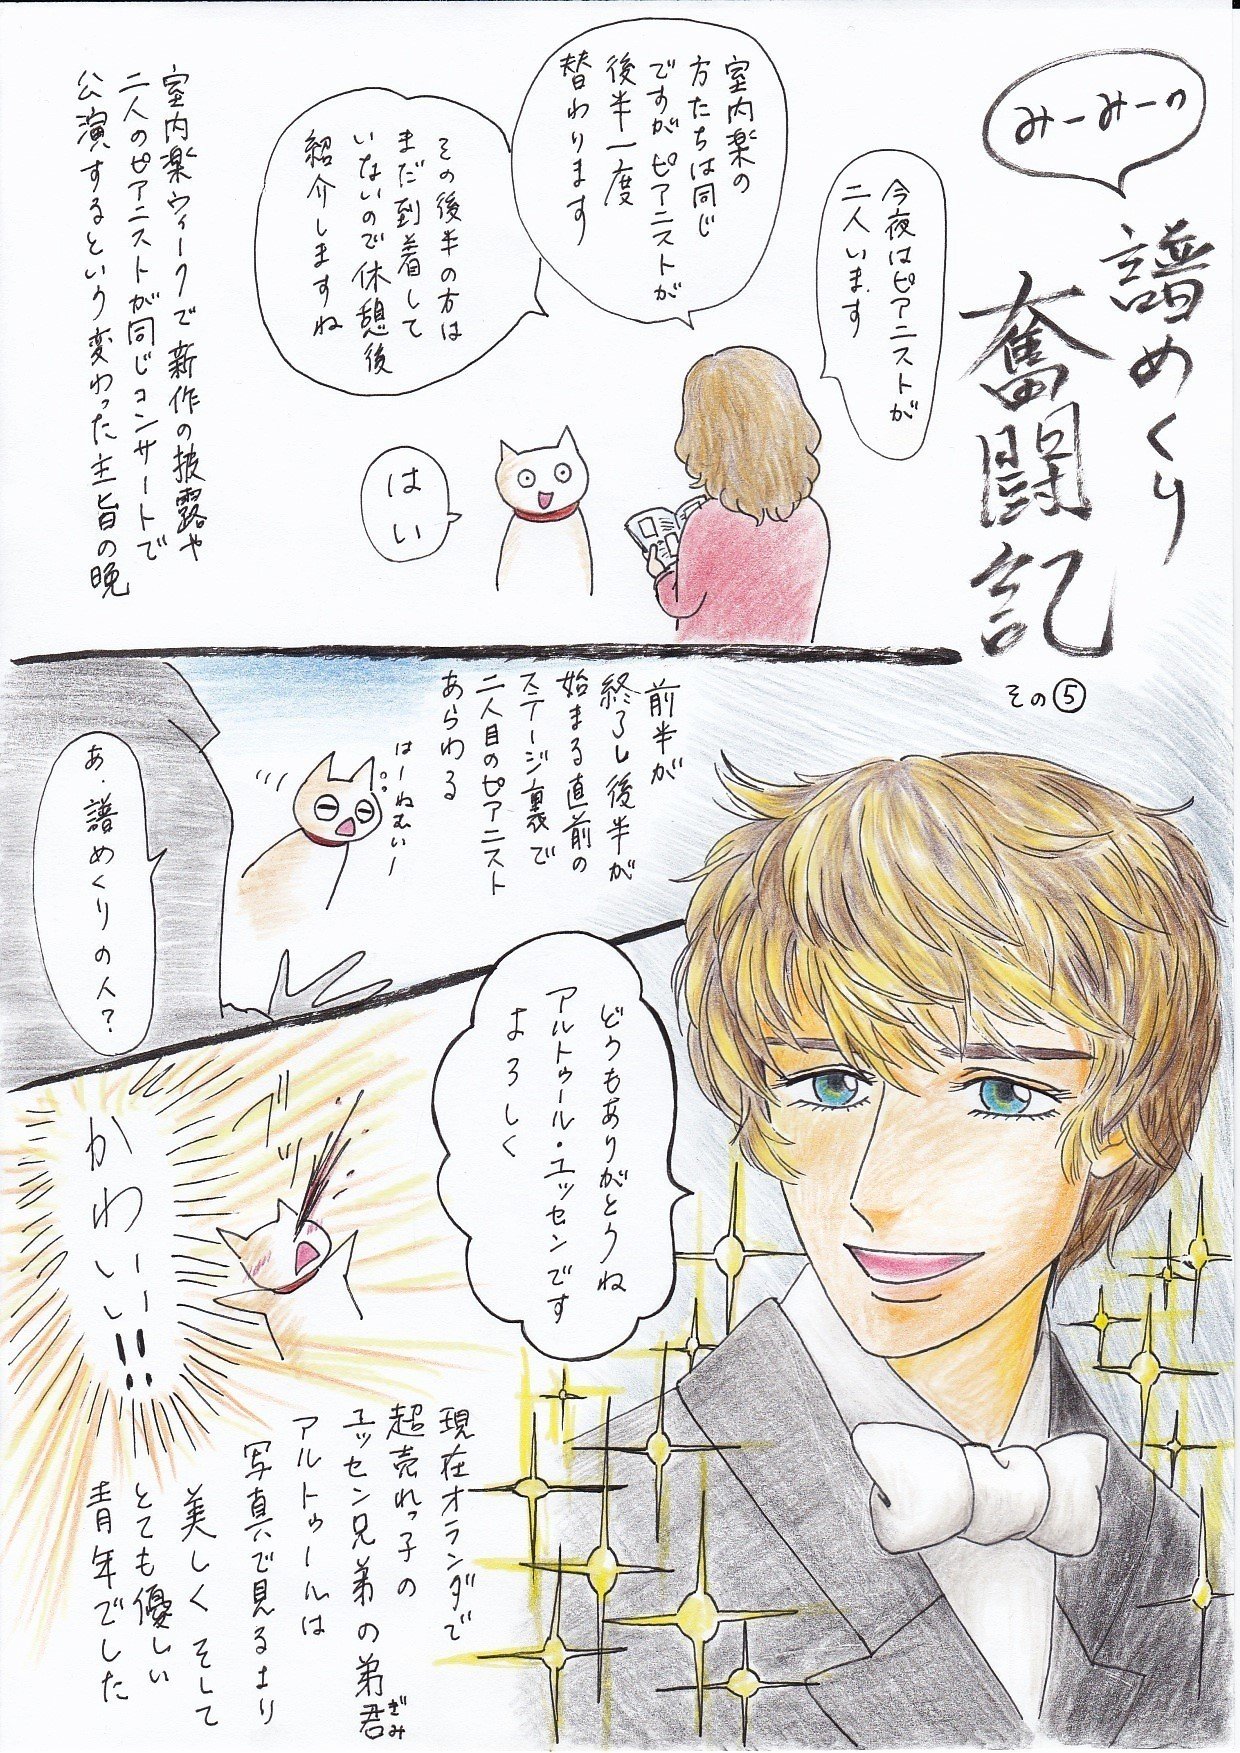 みーみーの
譜めくり
奮闘記
その⑤
今夜はピアニストが
二人います
室内楽の
方たちは同じ
ですがピアニストが
後半一度
替わります
その後半の方は
まだ到着して
いないので休憩後
紹介しますね
はい
室内楽ウィークで新作の披露や
二人のピアニストが同じコンサートで
公演するという変わった主旨の晩
前半が
終了し後半が
始まる直前の
ステージ裏で
二人目のピアニスト
あらわる
はーねむいー
あ、譜めくりの人?
どうもありがとうね
アルトゥール・ユッセンです
よろしく
ブッ
かわいいー!!
現在オランダで
超売れっ子の
ユッセン兄弟の弟君
ぎみ
アルトゥールは
写真で見るより
美しく そして
とても優しい
青年でした